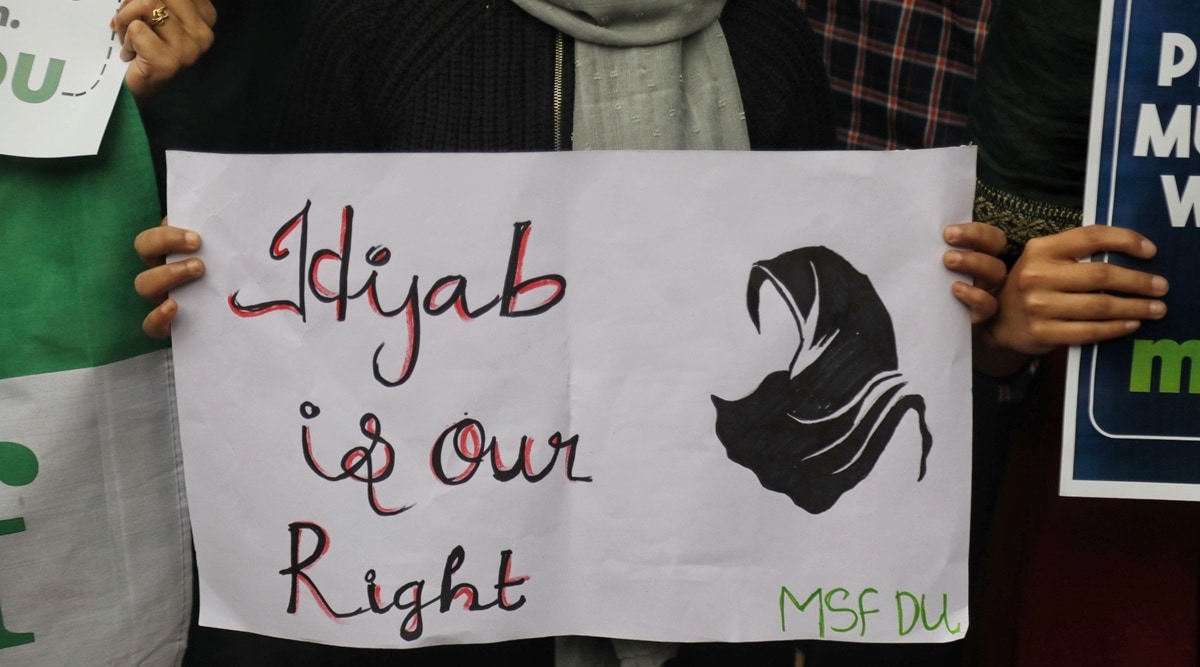 DU
Hijab
is our
Right
MSF DU